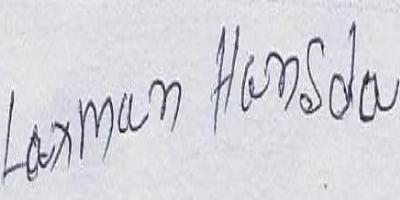 Laxman Hansda